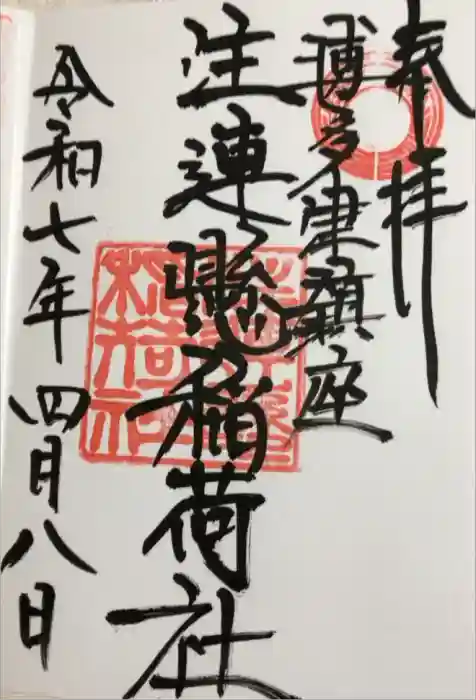 奉拝
博多津鎮座
注連懸稲荷社
令和七年四月八日